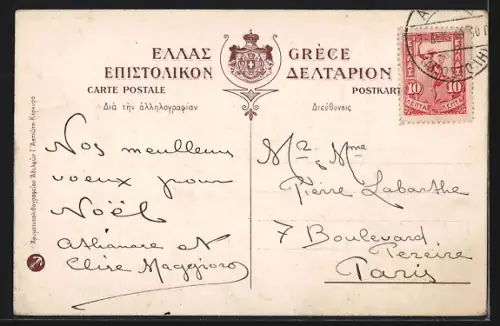 ΕΛΛΑΣ GRÈCE
ΕΠΙΣΤΟΛΙΚΟΝ ΔΕΛΤΑΡΙΟΝ
CARTE POSTALE POSTKART
Διὰ τὴν ἀλληλογραφίαν Διεύθυνσις
ΕΛΛΑΣ
10 10
ΛΕΠΤΑ ΛΕΠΤΑ
Nos meilleurs
voeux pour
Noël
Athanase et
Elise Maggioro
Mr & Mme
Pierre Labarthe
7 Boulevard
Pereire
Paris